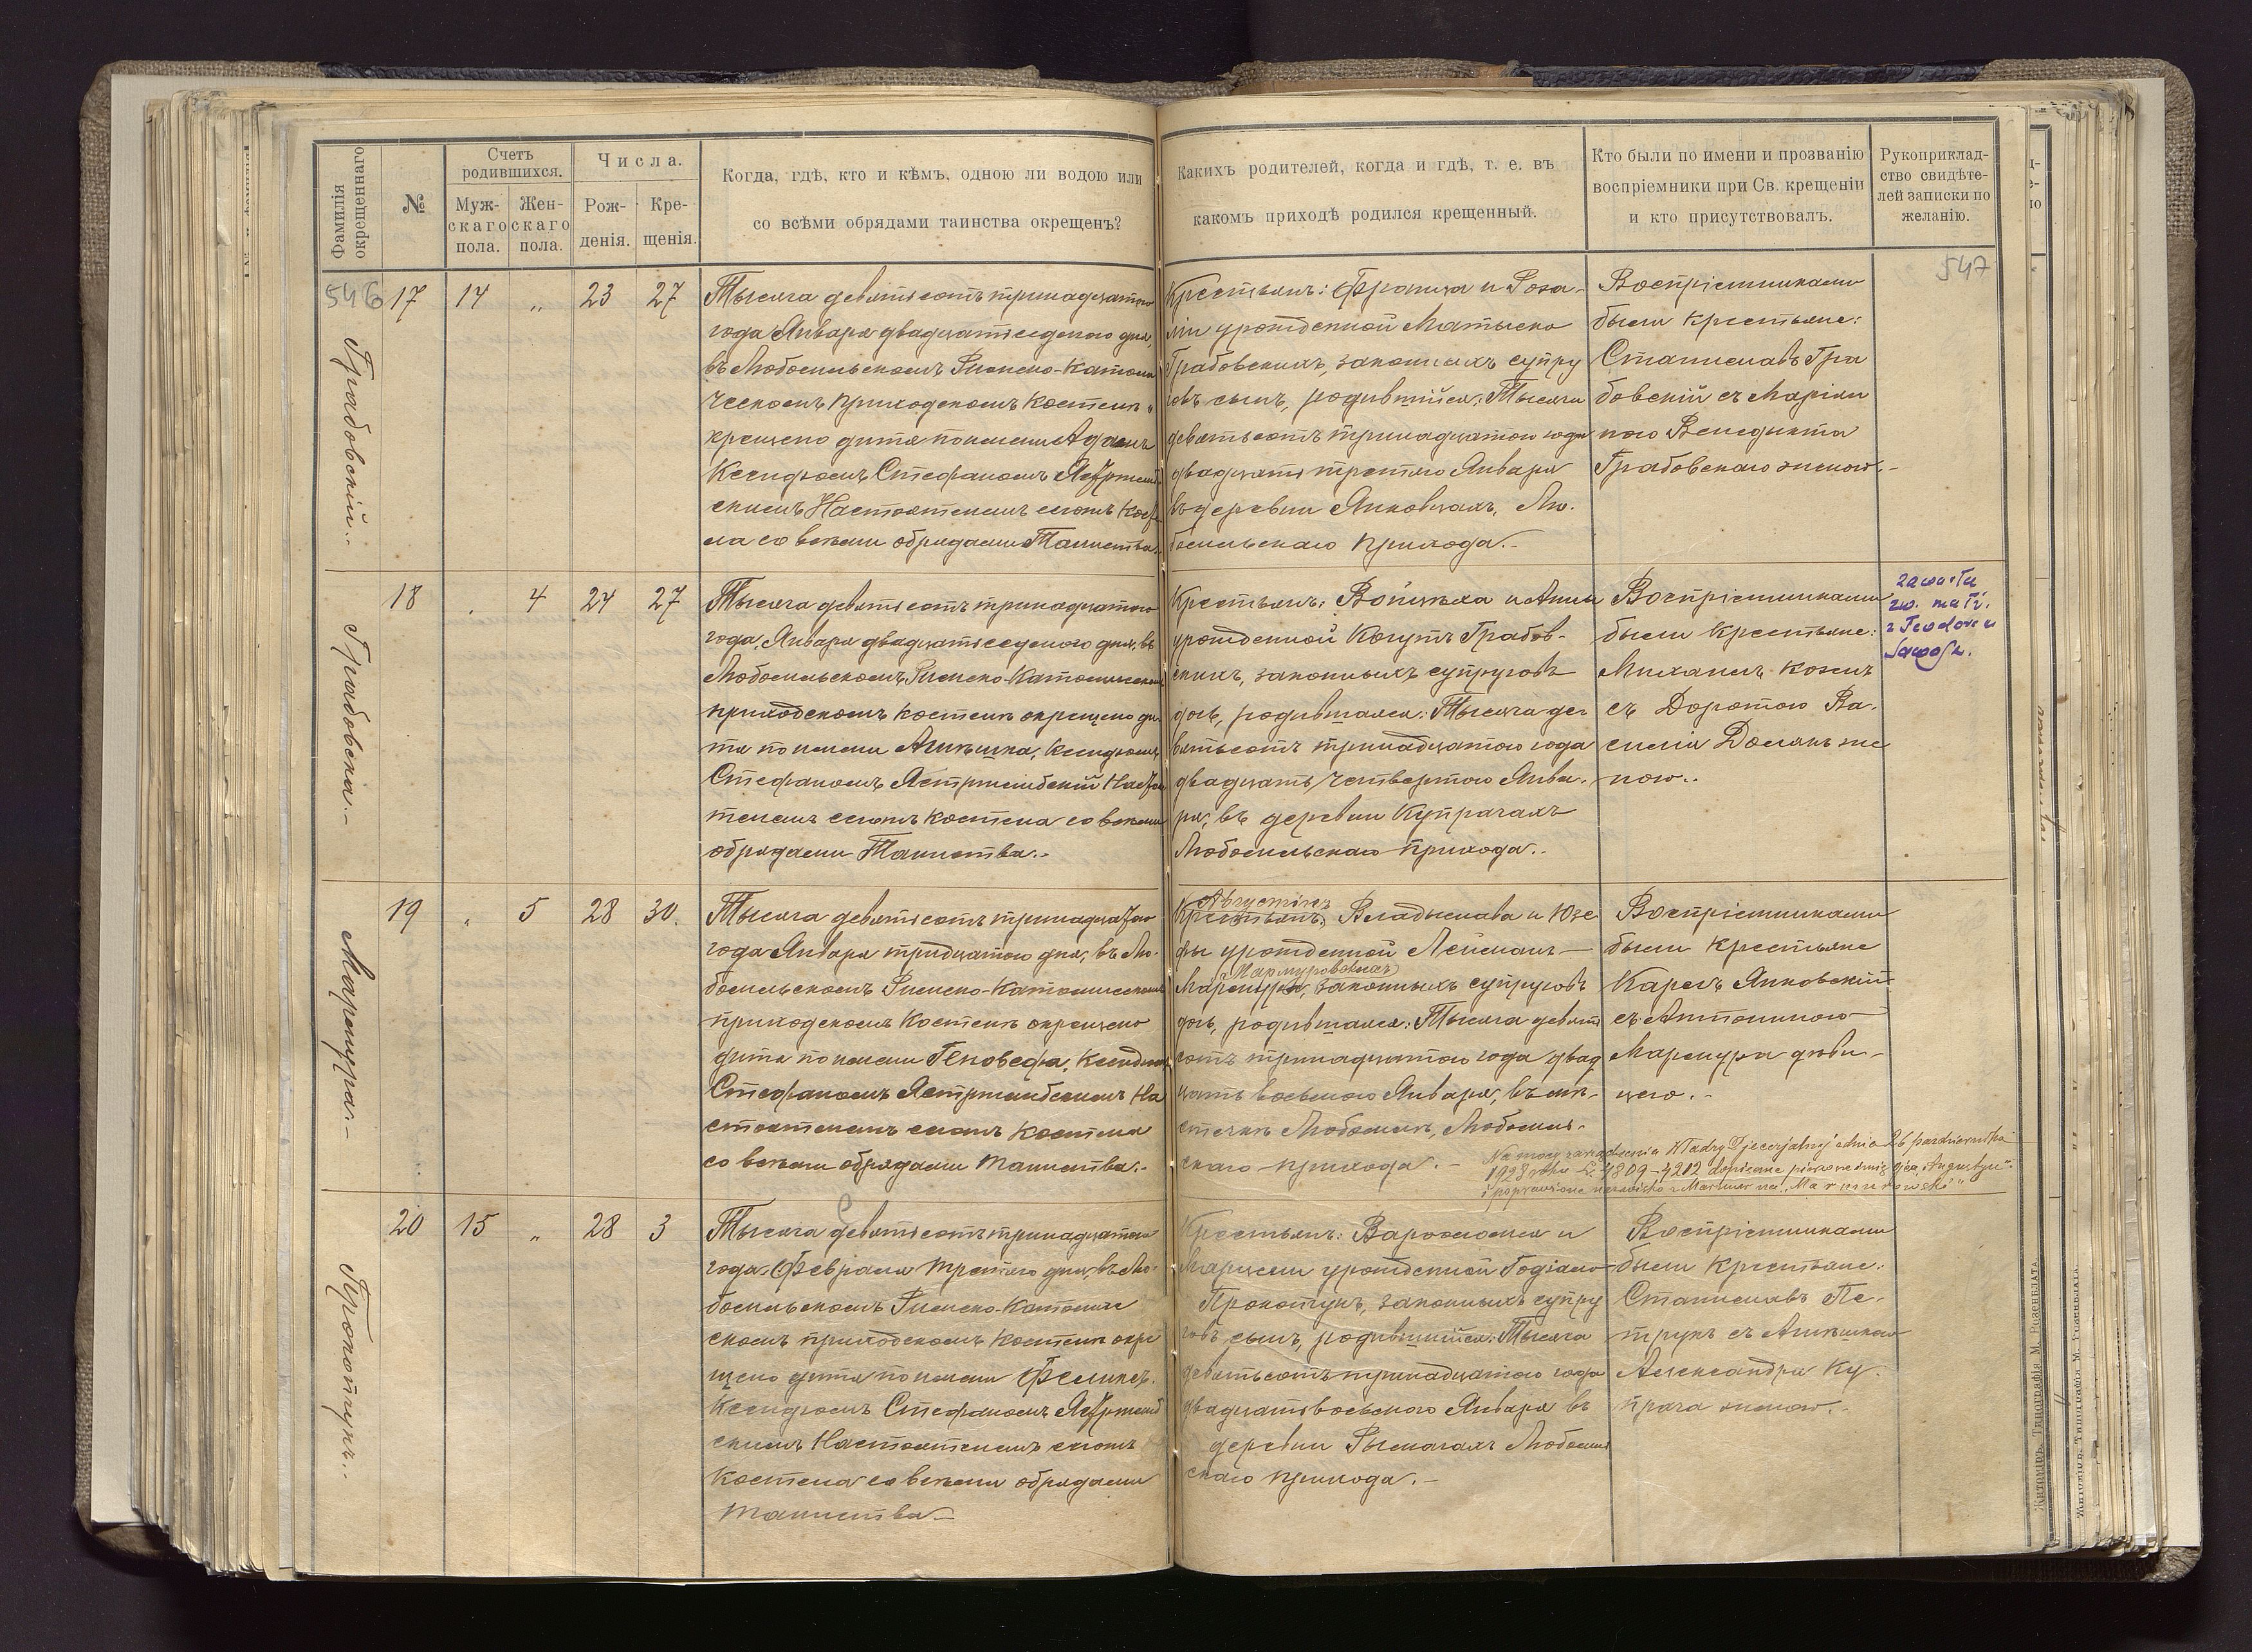 Фамилія окрещеннаго
№
Счетъ родившихся.
Муж-
скаго
пола.
Жен-
скаго
пола.
Числа.
Рож-
денія.
Кре-
щенія.
Когда, гдѣ, кто и кѣмъ, одною ли водою или
со всѣми обрядами таинства окрещенъ?
Какихъ родителей, когда и гдѣ, т. е. въ
какомъ приходѣ родился крещенный.
Кто были по имени и прозванію
воспріемники при Св. крещеніи
и кто присутствовалъ.
Рукоприклад-
ство свидѣте-
лей записки по
желанію.
546
547
Грабовскій..
17 14 „ 23 27
Тысяча девятьсотъ тринадцатаго
года Января двадцать седьмого дня,
въ Любомльскомъ Римско-Католи
ческомъ приходскомъ Костелѣ
крещено дитя по имени Адамъ
Ксендзомъ Стефаномъ Ястржемб
скимъ Настоятелемъ сего Косте
ла со всѣми обрядами Таинства.
Крестьянъ: Франца и Роза-
ліи урожденной Матыско
Грабовскихъ, законныхъ супру
говъ сынъ, родившійся: Тысяча
девятьсотъ тринадцатого года
двадцать третяго Января
въ деревни Янковцахъ, Лю-
бомльскаго прихода.-
Воспріемниками
были Крестьяне:
Станиславъ Гра
бовскій съ Маріян
ною Венедикта
Грабовскаго женою.-
Грабовска.-
18 . 4 24 27
Тысяча девятьсотъ тринадцатого
года, Января двадцать седьмого дня, въ
Любомльскомъ Римско-Католическомъ
приходскомъ Костелѣ окрещено ди-
тя по имени Агнѣшка, Ксендзомъ
Стефаномъ Ястржембскій Настоя
телемъ сего Костела со всѣми
обрядами Таинства.-
Крестьянъ: Войцѣха и Анны
урожденной Когутъ Грабов-
скихъ, законныхъ супруговъ
дочь, родившаяся: Тысяча де
вятьсотъ тринадцатого года
двадцать четвертого Янва-
ря, въ деревни Купрачахъ
Любомльскаго прихода.-
Воспріемниками
были Крестьяне:
Михаилъ Козелъ
съ Доротою Ва-
силія Домань же
ною..
zawarła
zw. małż.
z Teodorem
Мармура.-
19 „ 5 28 30.
Тысяча девятьсотъ тринадцатого
года Января тридцатого дня, въ Лю-
бомльскомъ Римско-Католическомъ
приходскомъ Костелѣ окрещено
дитя по имени Геновефа, Ксендзомъ
Стефаномъ Ястржембскимъ На
стоятелемъ сего Костела
со всѣми обрядами таинства.-
Августинъ
Крестьянъ, Владыслава и Юзе
фы урожденной Лейманъ-
Мармуровскихъ
Мармура, законныхъ супруговъ
дочь, родившаяся: Тысяча девять
сотъ тринадцатого года двад
цать восьмого Января, въ мѣ-
стечкѣ Любомлѣ, Любомль-
скаго прихода.-
Воспріемниками
были Крестьяне
Кароль Янковскій
съ Антониною
Мармура дѣви-
цею.-
Na mocy zarządzenia Władzy Djecezjalnej z dnia 26 października
1928 roku L. 4809-4212 dopisane pierwsze imię ojca „Augustyn"
i poprawione nazwisko z Marmur na „Marmurowski"
Прокопукъ..
20 15 „ 28 3
Тысяча девятьсотъ тринадцатого
года, Февраля третяго дня, въ Лю-
бомльскомъ Римско-Католиче
скомъ приходскомъ Костелѣ окре
щено дитя по имени Феликсъ.
Ксендзомъ Стефаномъ Ястржемб
скимъ Настоятелемъ сего
Костела со всѣми обрядами
таинства.-
Крестьянъ: Варѳоломея и
Марцели урожденной
Прокопукъ, законныхъ супру
говъ сынъ, родившійся: Тысяча
девятьсотъ тринадцатого года
двадцать восьмого Января въ
деревни Рымачахъ Любомль
скаго прихода.-
Воспріемниками
были Крестьяне:
Станиславъ Пе-
трукъ съ Агнѣшкою
Александра Ку-
прача женою.-
Житомиръ. Типографія М. Розенблата.